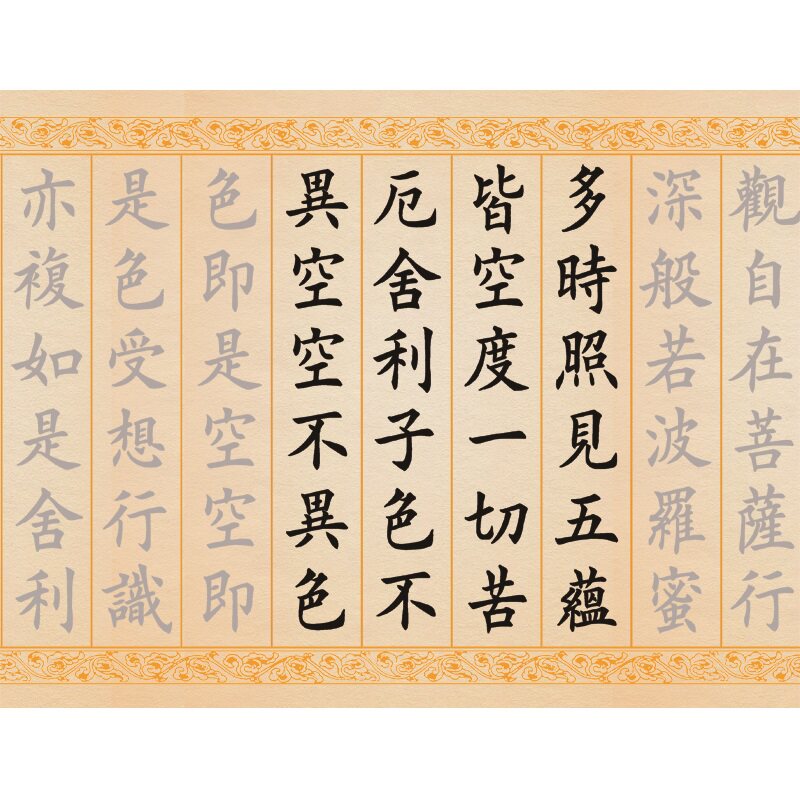 觀自在菩薩行
深般若波羅蜜
多時照見五蘊
皆空度一切苦
厄舍利子色不
異空空不異色
色即是空空即
是色受想行識
亦複如是舍利